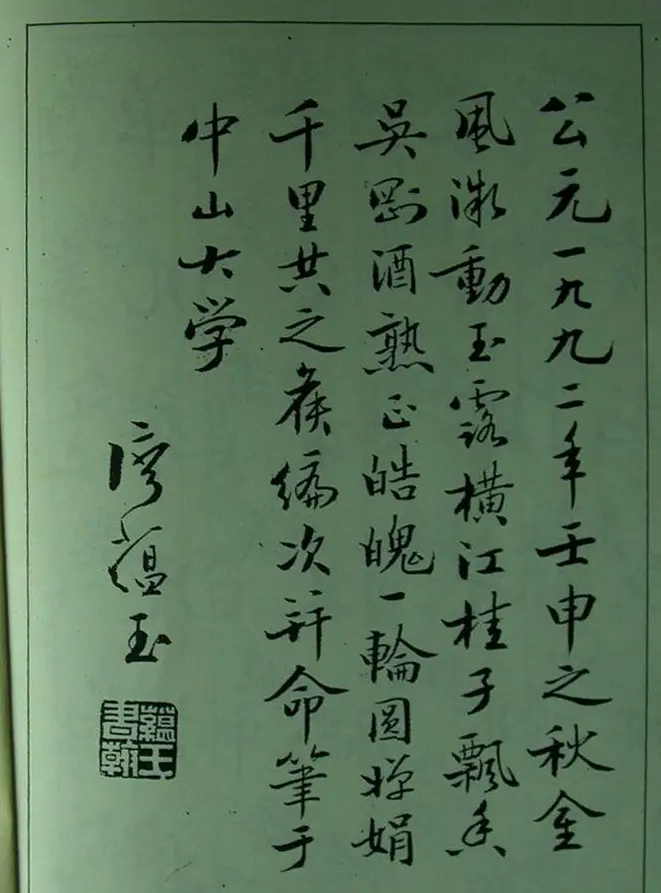 公元一九九二年壬申之秋金
風微動玉露橫江桂子飄香
吳剛酒熟正皓魄一輪圓嬋娟
千里共之矦編次并命筆于
中山大学
廖蘊玉
蘊玉書翰